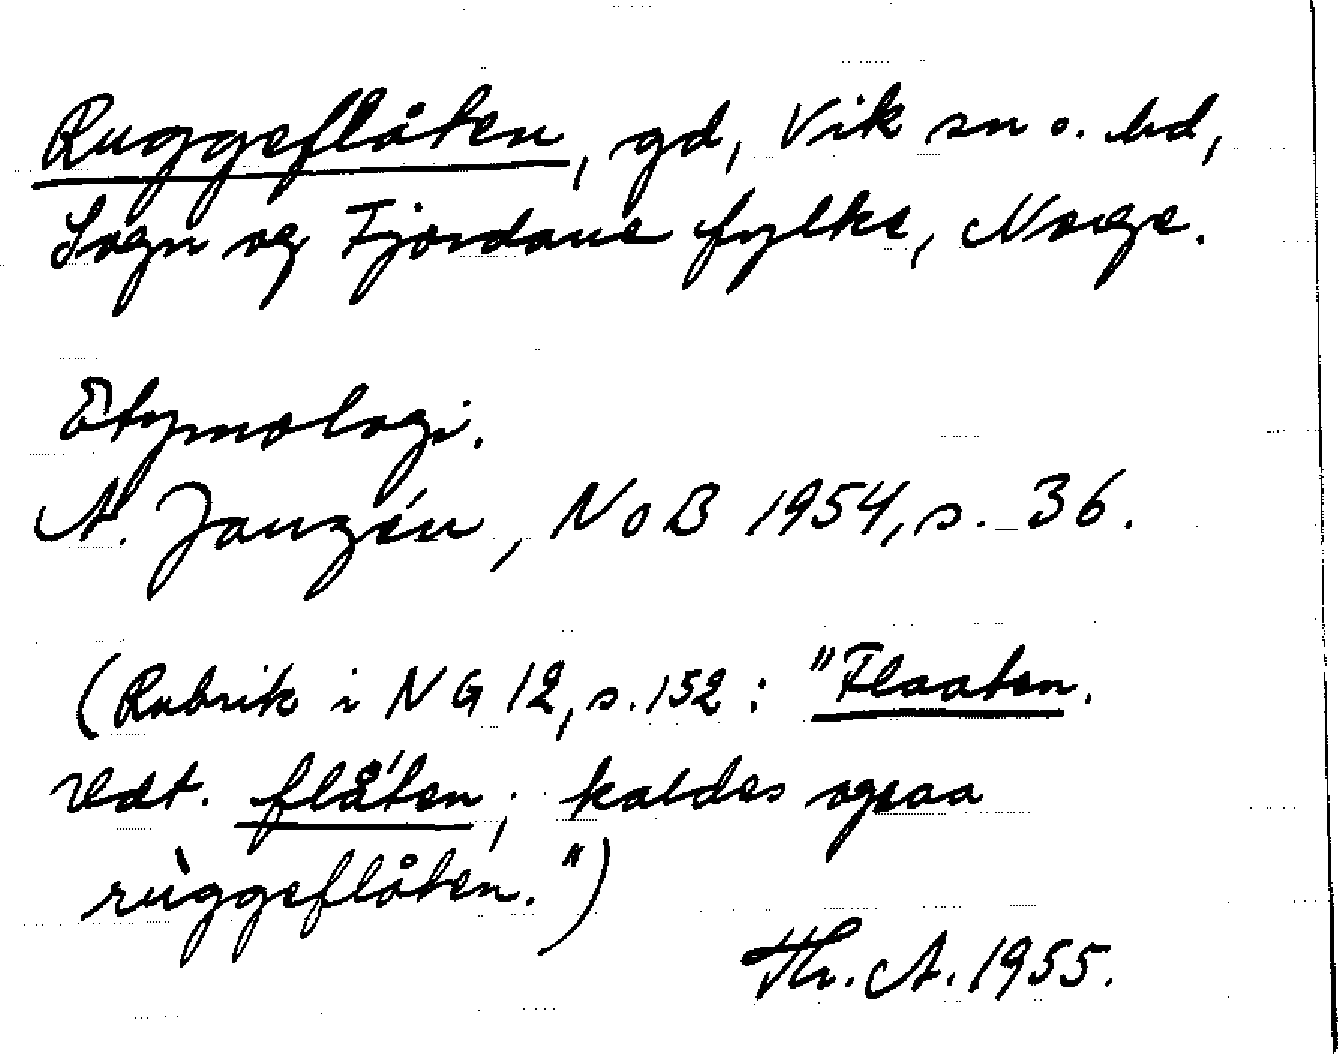 Ruggeflåten, gd, Vik sn o. hd,
Sogn og Fjordane fylke, Norge.
Etymologi.
A. Janzén, NoB 1954, s. 36.
(Rubrik i NG 12, s. 152: "Flaaten.
Udt. flǻten; kaldes ogsaa
rùggeflåten.")
Th. A. 1955.